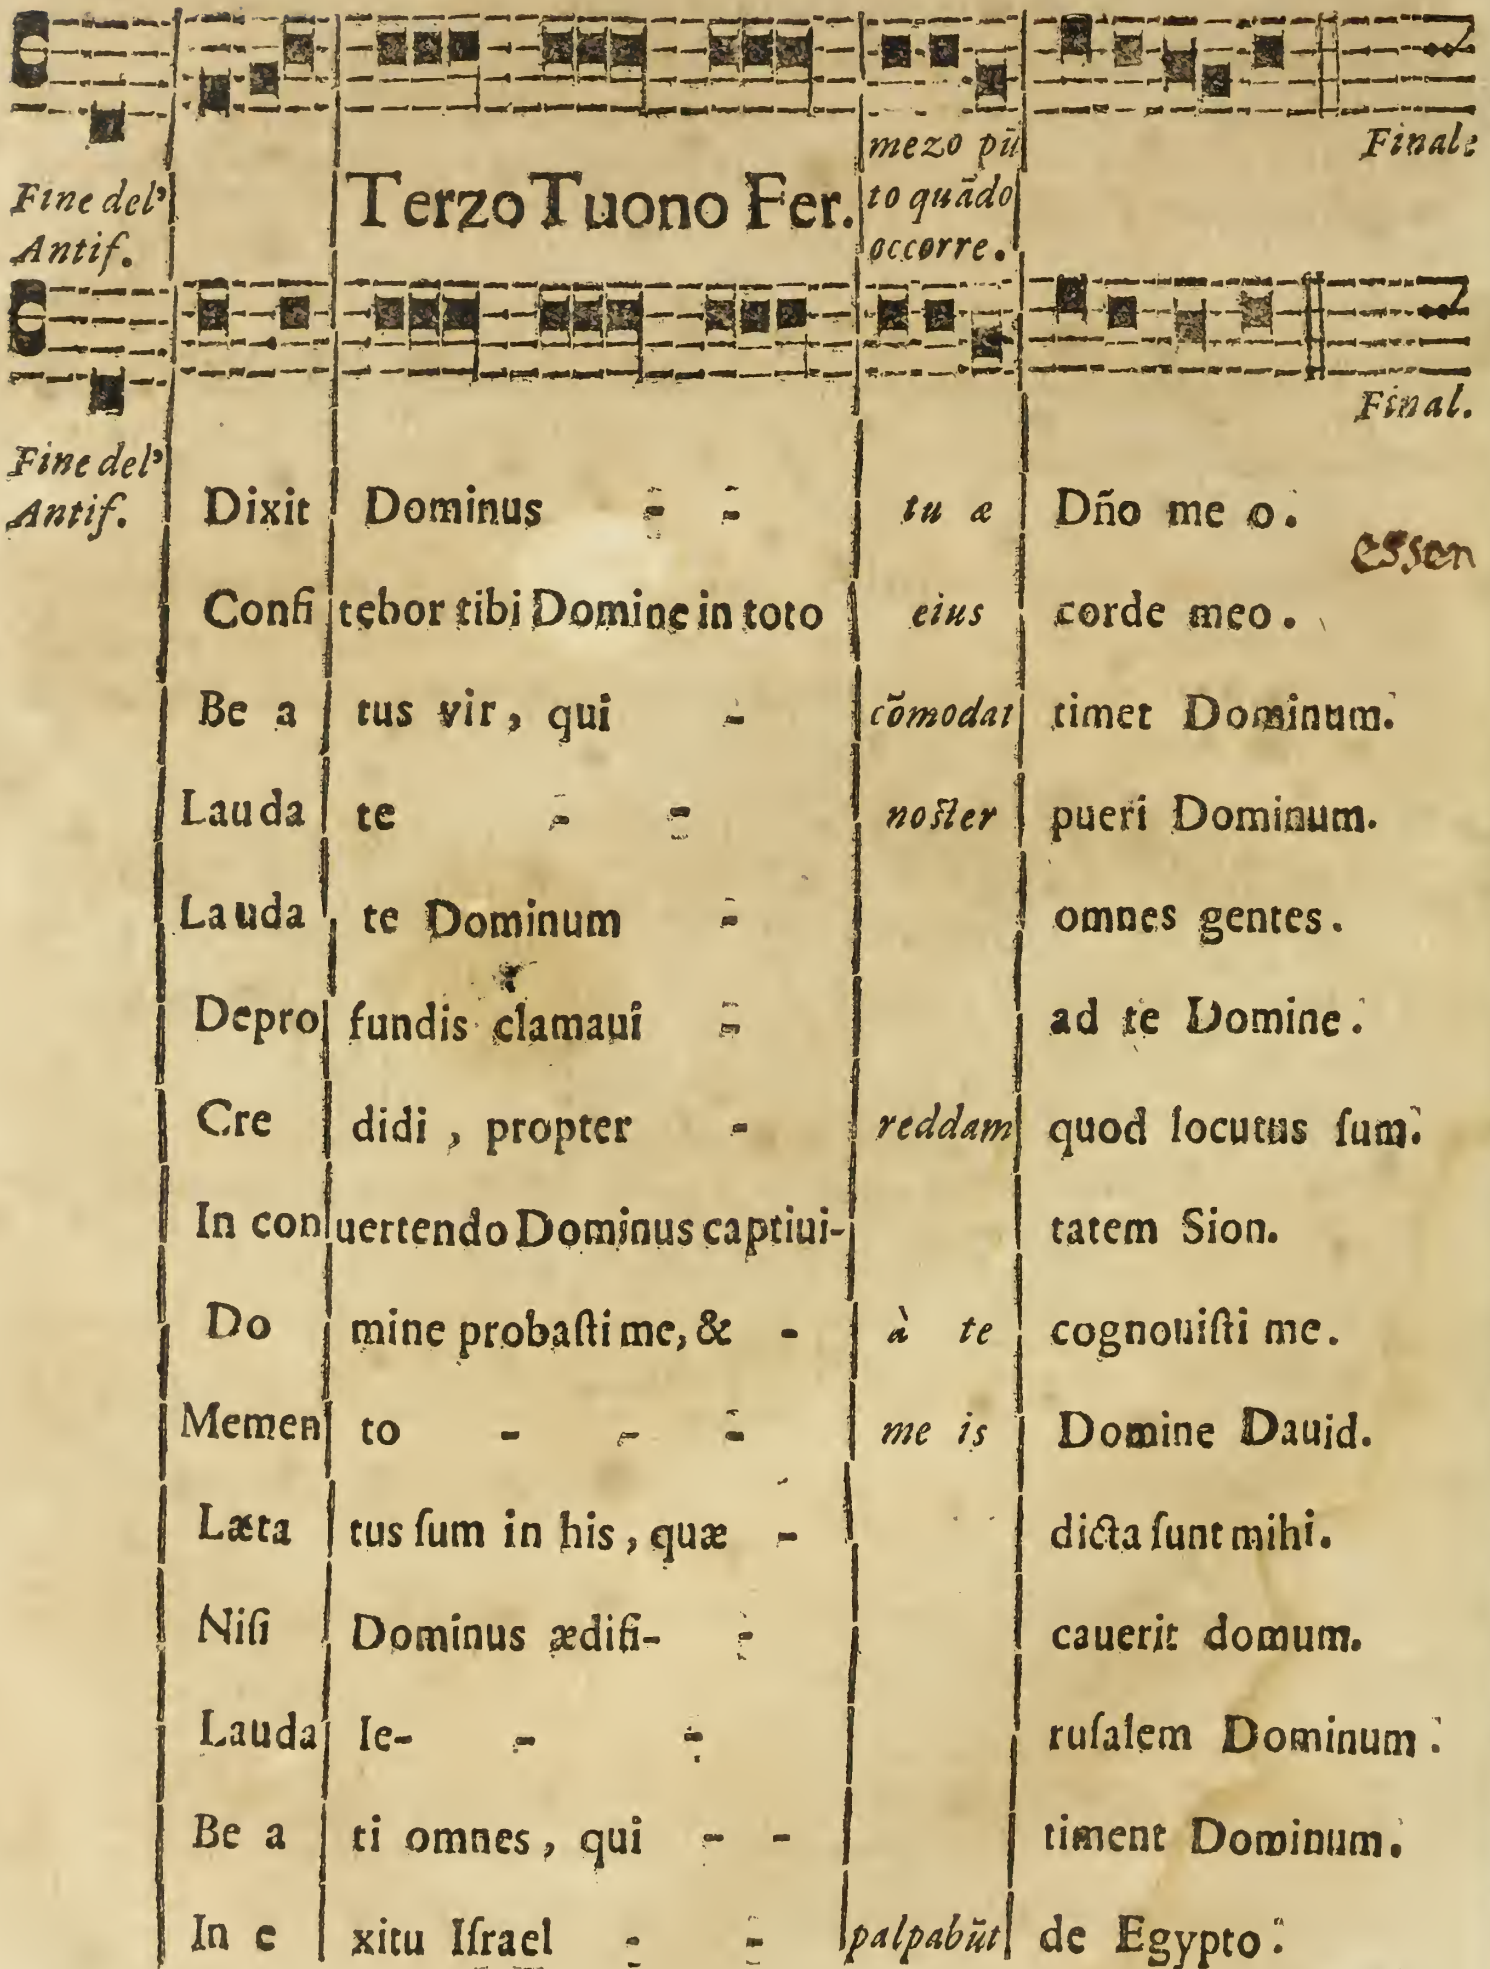 mezo pũ Finale
Fine del' Terzo Tuono Fer. to quãdo
Antif. occorre.
Final.
Fine del'
Antif. Dixit Dominus - - tu æ Dño me o.
essen
Confi tebor tibi Domine in toto eius corde meo.
Be a tus vir, qui - cõmodat timet Dominum.
Lauda te - - noſter pueri Dominum.
Lauda te Dominum - omnes gentes.
Depro fundis clamaui - ad te Domine.
Cre didi, propter - reddam quod locutus ſum.
In con uertendo Dominus captiui- tatem Sion.
Do mine probaſti me, & - à te cognouiſti me.
Memen to - - - me is Domine Dauid.
Læta tus ſum in his, quæ - dicta ſunt mihi.
Niſi Dominus ædifi- - cauerit domum.
Lauda Ie- - - ruſalem Dominum.
Be a ti omnes, qui - - timent Dominum.
In e xitu Iſrael - - palpabũt de Egypto.